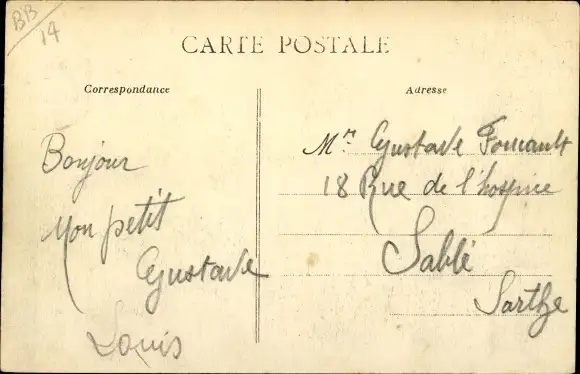 BB
14
CARTE POSTALE
Correspondance
Adresse
Bonjour
Mon petit
Gustave
Louis
Mr Gustave Foucault
18 Rue de l'hospice
Sablé
Sarthe